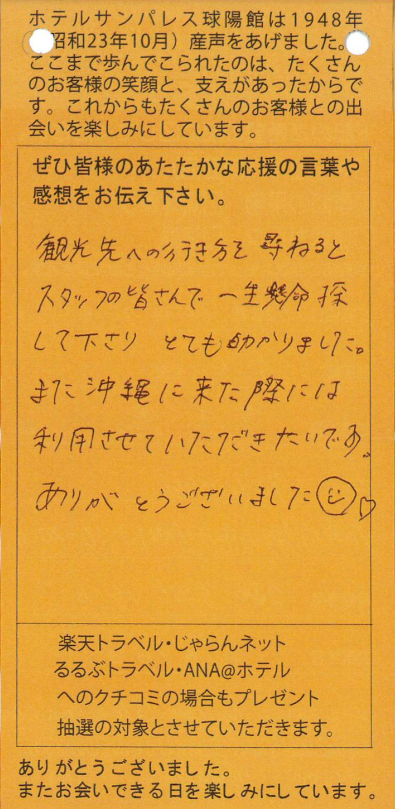 ホテルサンパレス球陽館は1948年
昭和23年10月）産声をあげました。
ここまで歩んでこられたのは、たくさん
のお客様の笑顔と、支えがあったからで
す。これからもたくさんのお客様との出
会いを楽しみにしています。
ぜひ皆様のあたたかな応援の言葉や
感想をお伝え下さい。
観光先への行き方を尋ねると
スタッフの皆さんで一生懸命探
して下さり とても助かりました。
また沖縄に来た際には
利用させていただきたいです。
ありがとうございました
楽天トラベル・じゃらんネット
るるぶトラベル・ANA@ホテル
へのクチコミの場合もプレゼント
抽選の対象とさせていただきます。
ありがとうございました。
またお会いできる日を楽しみにしています。